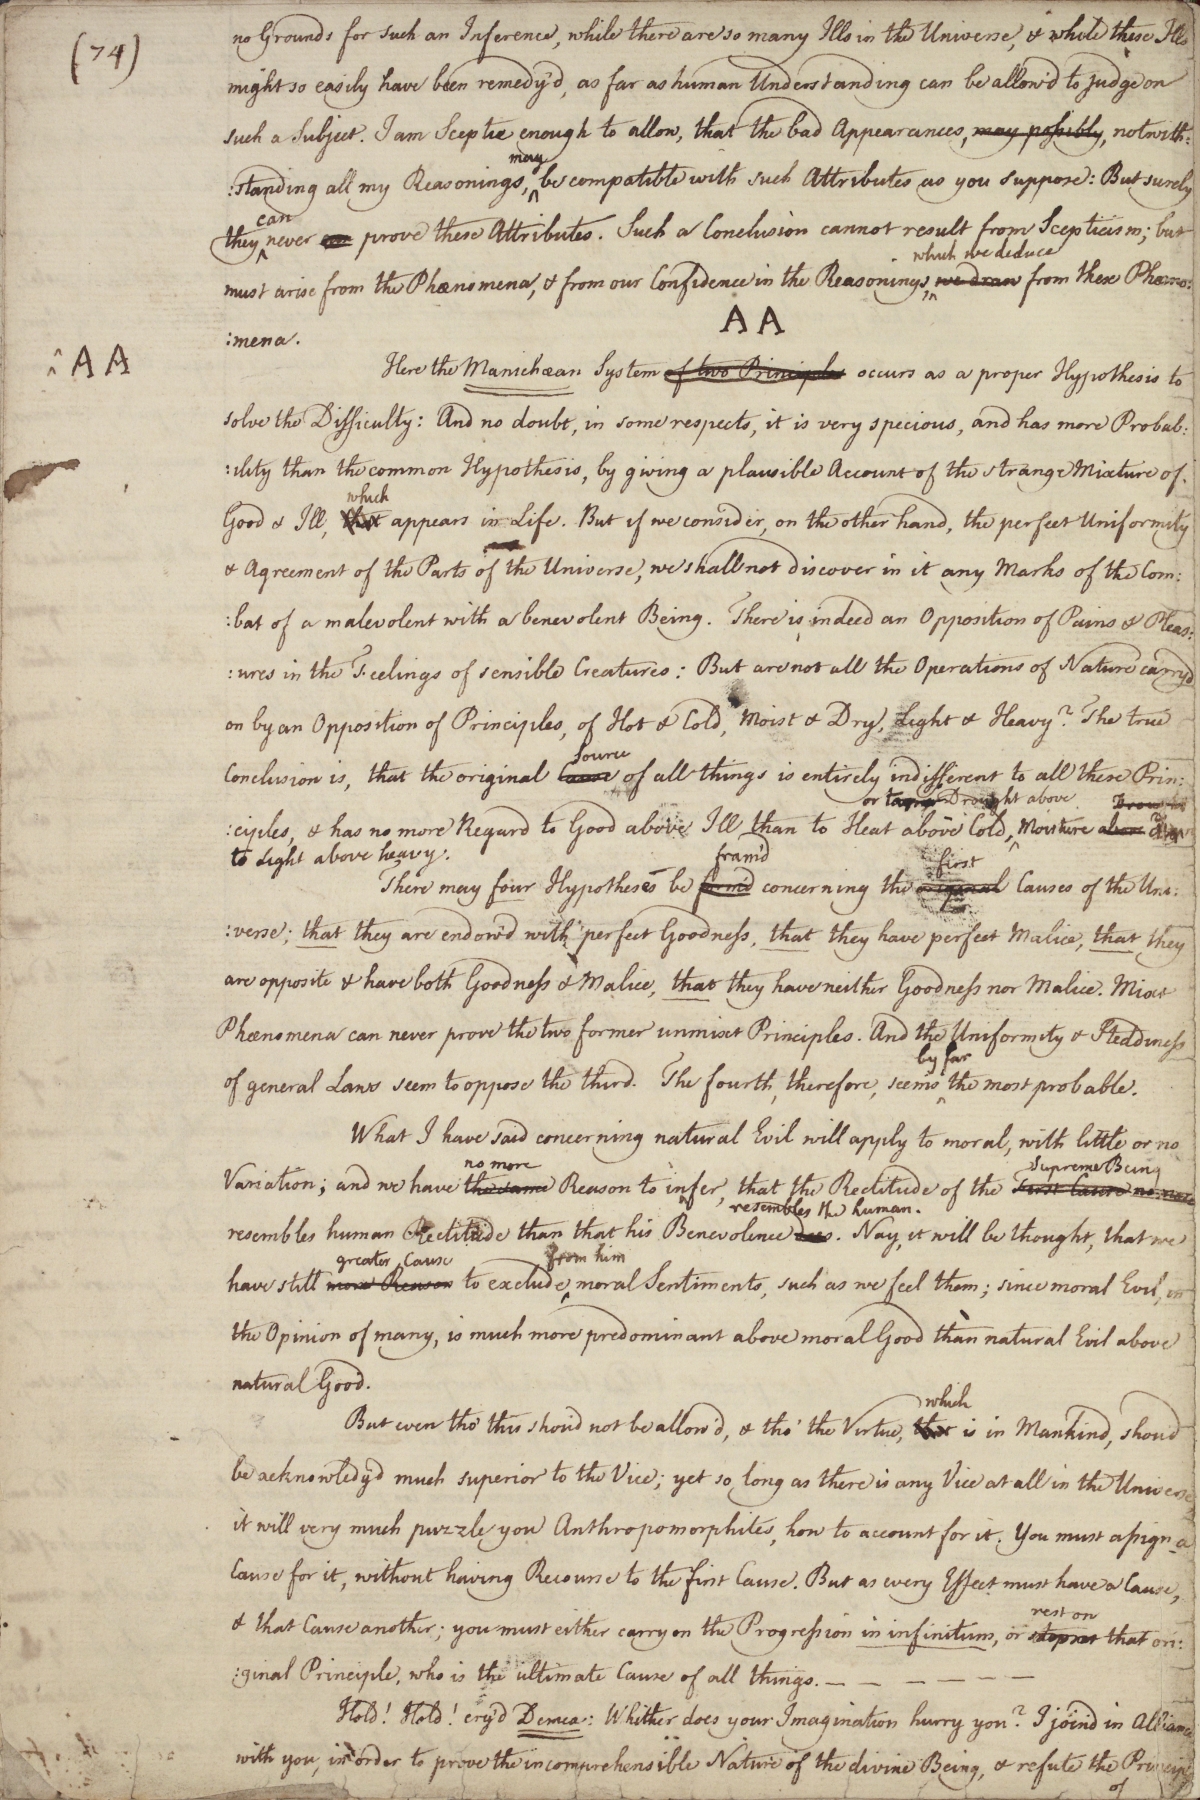 (74)
no Grounds for such an Inference, while there are so many Ills in the Universe, & while these Ills
might so easily have been remedy'd, as far as human Understanding can be allow'd to judge on
such a Subject. I am Sceptic enough to allow, that the bad Appearances, may possibly, notwith:
may
:standing all my Reasonings, ^ be compatible with such Attributes as you suppose: But surely
can
they ^ never can prove these Attributes. Such a Conclusion cannot result from Scepticism; but
which we deduce
must arise from the Phænomena, & from our Confidence in the Reasonings, ^ we draw from these Phæno:
:mena.
AA
^AA
Here the Manichæan System of two Principles occurs as a proper Hypothesis to
solve the Difficulty: And no doubt, in some respects, it is very specious, and has more Probab:
:ility than the common Hypothesis, by giving a plausible Account of the strange Mixture of
which
Good & Ill, that appears in Life. But if we consider, on the other hand, the perfect Uniformity
& Agreement of the Parts of the Universe, we shall not discover in it any Marks of the Com:
:bat of a malevolent with a benevolent Being. There is indeed an Opposition of Pains & Pleas:
:ures in the Feelings of sensible Creatures: But are not all the Operations of Nature carry'd
on by an Opposition of Principles, of Hot & Cold, Moist & Dry, Light & Heavy? The true
source
Conclusion is, that the original Cause of all things is entirely indifferent to all these Prin:
or Drought above
:ciples, & has no more Regard to Good above Ill than to Heat above Cold, ^ Moisture above
to Light above heavy.
fram'd first
There may four Hypotheses be form'd concerning the original Causes of the Uni:
:verse; that they are endow'd with perfect Goodness, that they have perfect Malice, that they
are opposite & have both Goodness & Malice, that they have neither Goodness nor Malice. Mixt
Phænomena can never prove the two former unmixt Principles. And the Uniformity & Steddiness
by far
of general Laws seem to oppose the third. The fourth, therefore, seems ^ the most probable.
What I have said concerning natural Evil will apply to moral, with little or no
no more Supreme Being
Variation; and we have the same Reason to infer, that the Rectitude of the First Cause no more
resembles the human.
resembles human Rectitude than that his Benevolence does. Nay, it will be thought, that we
greater Cause from him
have still more Reason to exclude ^ moral Sentiments, such as we feel them; since moral Evil, in
the Opinion of many, is much more predominant above moral Good than natural Evil above
natural Good.
which
But even tho' this shou'd not be allow'd, & tho' the Virtue, that is in Mankind, shou'd
be acknowledg'd much superior to the Vice; yet so long as there is any Vice at all in the Universe
it will very much puzzle you Anthropomorphites, how to account for it. You must assign a
Cause for it, without having Recourse to the first Cause. But as every Effect must have a Cause,
& that Cause another; you must either carry on the Progression in infinitum, or
rest on
that ori:
:ginal Principle, who is the ultimate Cause of all things. — — — — —
Hold! Hold! cry'd Demea: Whither does your Imagination hurry you? I join'd in Alliance
with you, in order to prove the incomprehensible Nature of the divine Being, & refute the
of